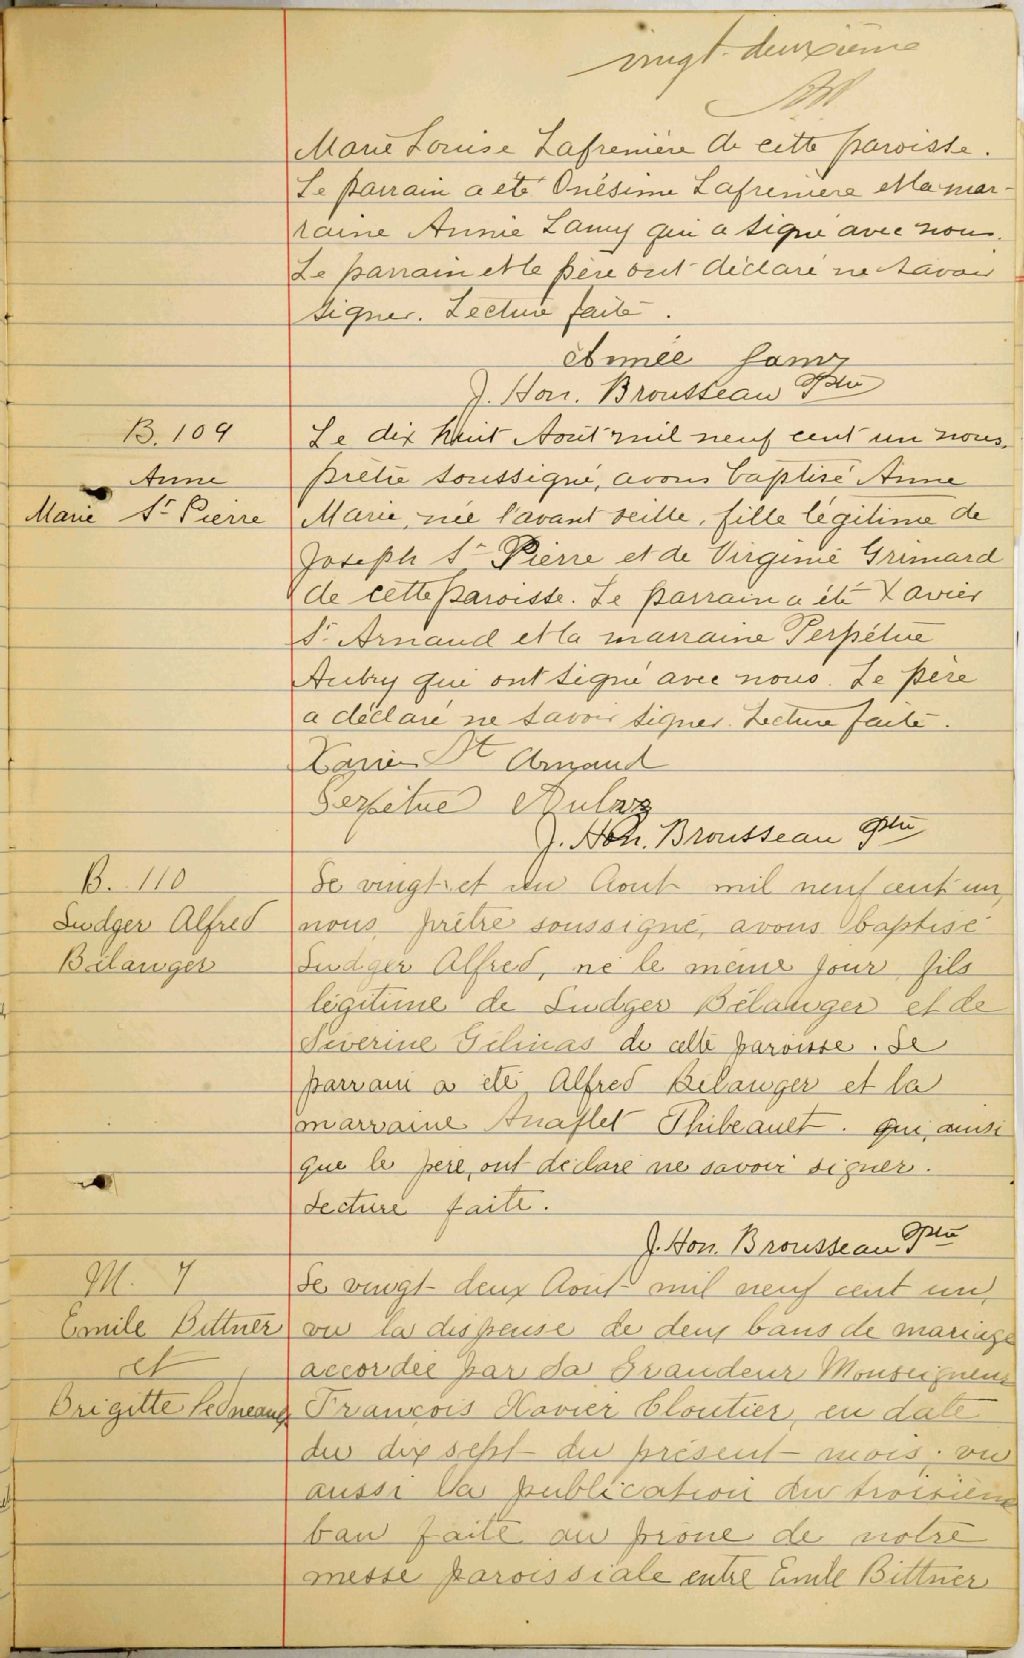 vingt-deuxième
Marie Louise Lafrenière de cette paroisse.
Le parrain a été Onésime Lafreniere et la mar-
raine Annie Lamy qui a signé avec nous.
Le parrain et le père ont déclaré ne savoir
signer. Lecture faite.
Année Lamy
J. Hon. Brousseau Ptre
B. 109
Anne
Marie St Pierre
Le dix huit Août mil neuf cent un nous,
prêtre soussigné, avons baptisé Anne
Marie, née l'avant veille, fille légitime de
Joseph St Pierre et de Virginie Grimard
de cette paroisse. Le parrain a été Xavier
St Arnaud et la marraine Perpétue
Aubry qui ont signé avec nous. Le père
a déclaré ne savoir signer. Lecture faite.
Xavier St Arnaud
Perpétue Aubry
J. Hon. Brousseau Ptre
B. 110
Ludger Alfred
Bélanger
Le vingt et un Aout mil neuf cent un,
nous, prêtre soussigné, avons baptisé
Ludger Alfred, né le même jour, fils
légitime de Ludger Bélanger et de
Séverine Gélinas de cette paroisse. Le
parrain a été Alfred Bélanger et la
marraine Anaflet Thibeault. qui, ainsi
que le pere, ont déclaré ne savoir signer.
Lecture faite.
J. Hon. Brousseau Ptre
M. 7
Emile Bittner
et
Brigitte
Le vingt-deux Aout mil neuf cent un,
vu la dispense de deux bans de mariage
accordée par Sa Grandeur Monseigneur
François Xavier Cloutier, en date
du dix sept du présent mois; vu
aussi la publication du troisième
ban faite au prone de notre
messe paroissiale entre Emile Bittner